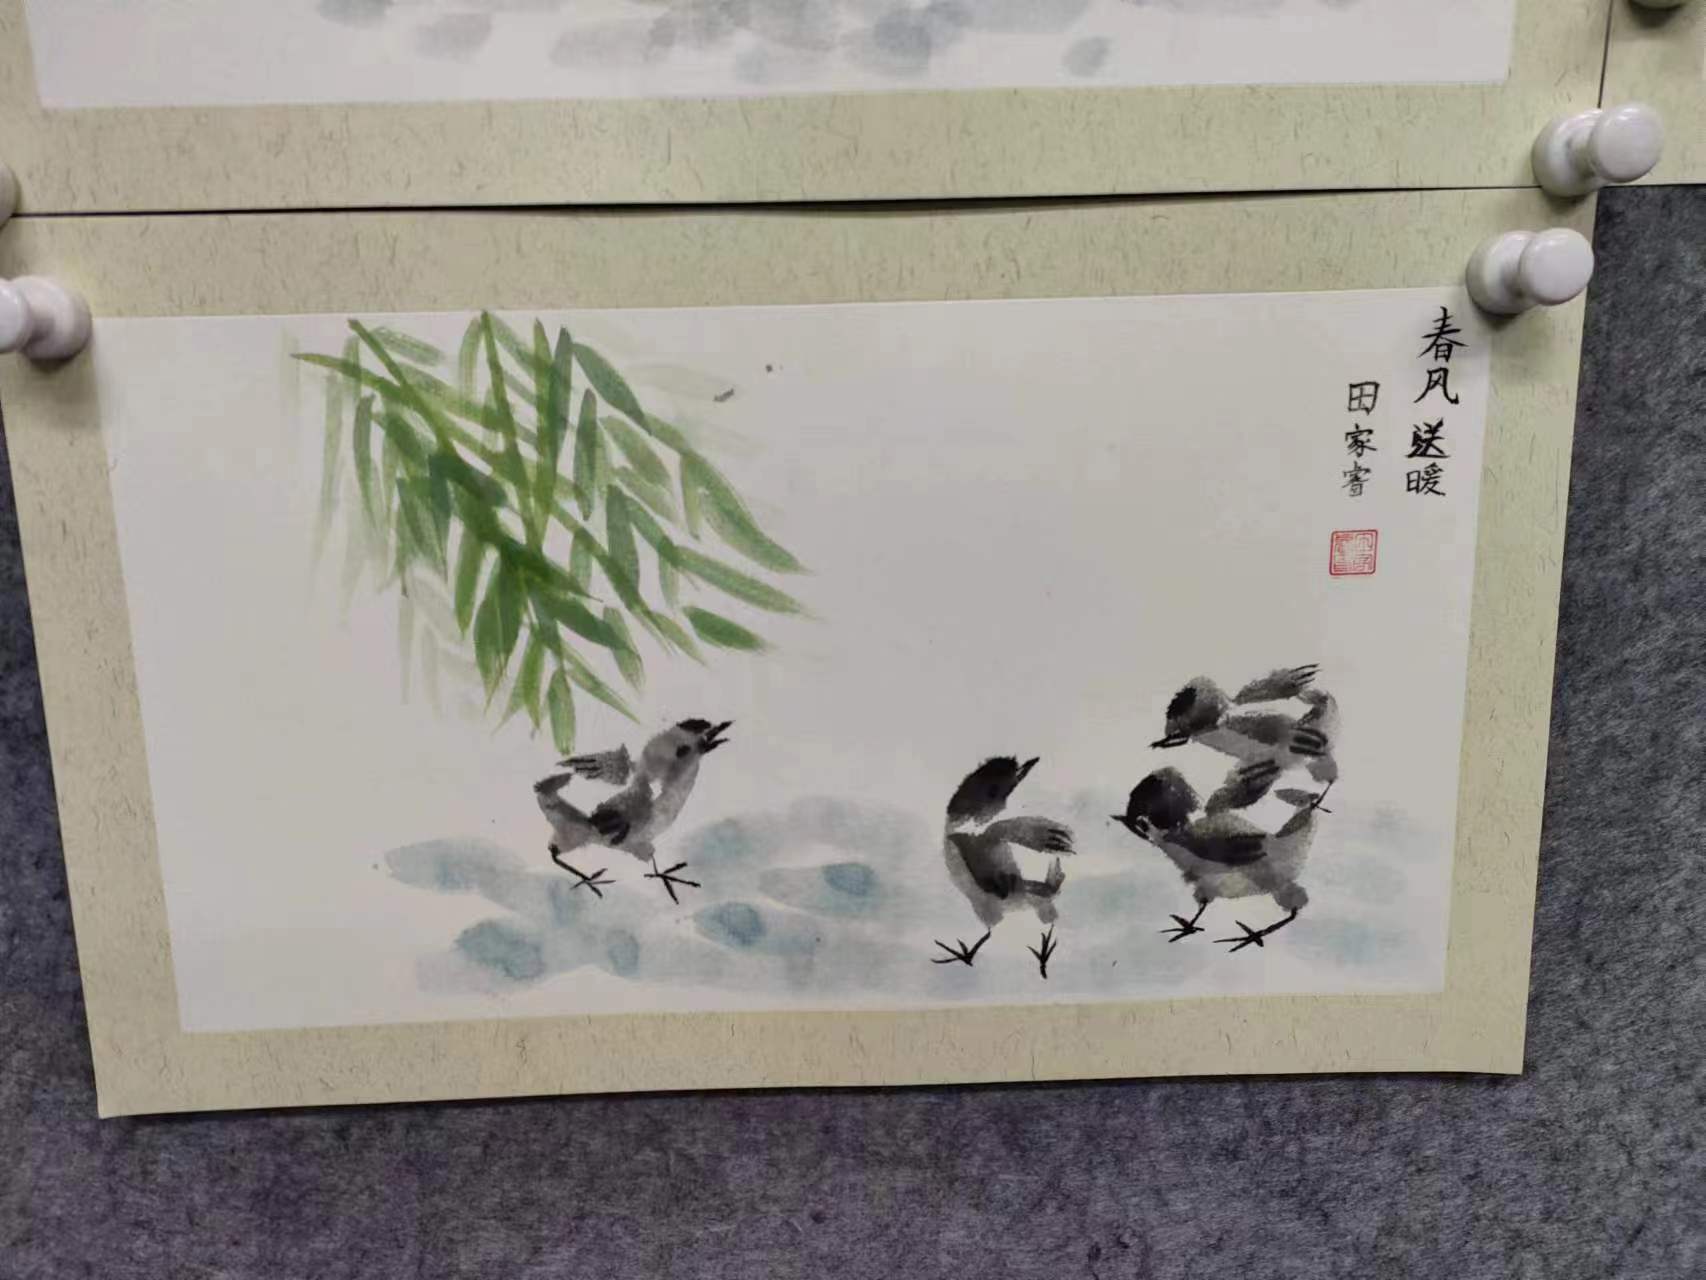 春风送暖
田家睿